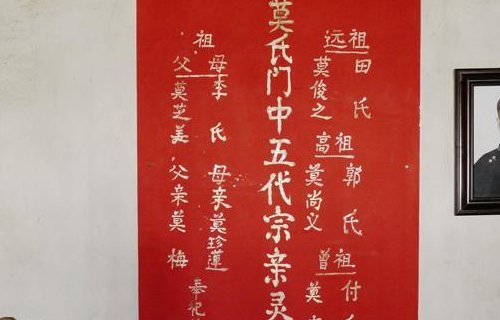 远祖
田氏
莫俊之
高祖
郭氏
莫尚义
曾祖
付
莫
莫氏门中五代宗亲灵
祖
母李氏
父莫芝美
母亲莫珍莲
父亲莫梅
奉祀